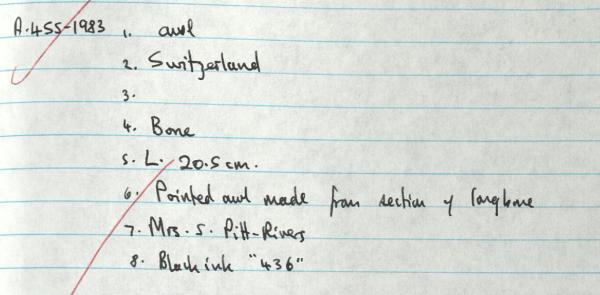 A.455-1983 1. awl
2. Switzerland
3.
4. Bone
5. L. 20.5 cm.
6. Pointed awl made from section of longbone
7. Mrs. S. Pitt-Rivers
8. Black ink "436"